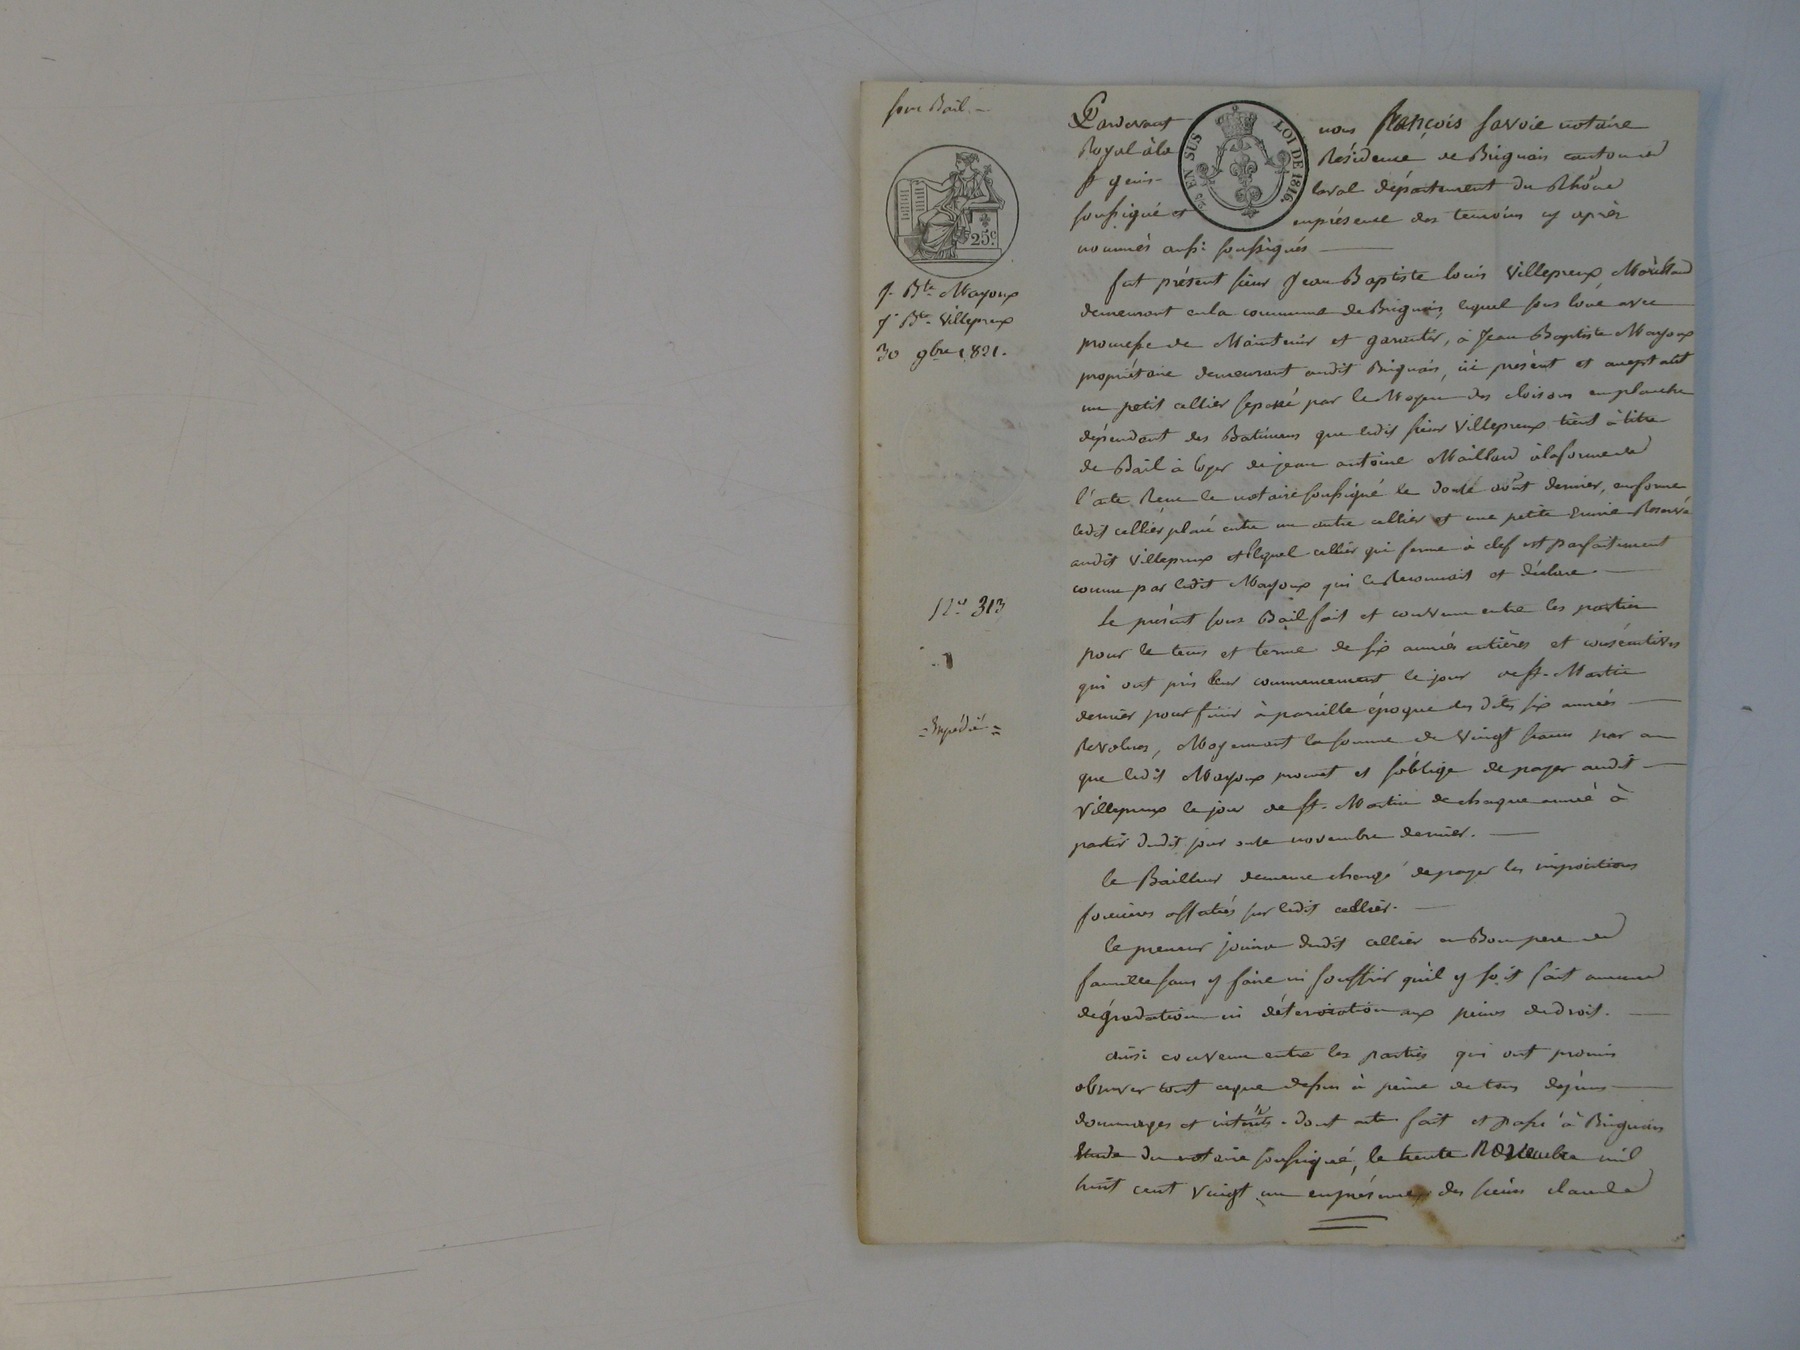 sous Bail.
25c.
J. Bte Mayoux
Jn Bte Villepreux
30 9bre 1821.
No 313
= Expédié =
EN SUS
LOI DE 1816
Pardevant nous françois Savoie notaire
Royal à la Résidence de Brignais canton de
St genis-laval département du Rhône
soussigné et en présence des temoins cy après
nommés aussi soussignés
fut présent sieur Jean Baptiste louis Villepreux
demeurant en la commune de Brignais, lequel sous loué avec
promesse de Maintenir et garantir, à Jean Baptiste Mayoux
propriétaire demeurant audit Brignais, ici présent et acceptant
un petit cellier séparé par le Moyen des cloisons en planche
dépendant des Batimens que ledit sieur Villepreux tient à titre
de Bail à loyer de jean antoine Maillard à la forme de
l'acte Recu le notaire soussigné le douze août dernier, en forme
ledit cellier placé entre un autre cellier et une petite Ecurie Réservé
audit Villepreux et lequel cellier qui ferme à clef est parfaitement
connu par ledit Mayoux qui le Reconnait et déclare.
Le présent sous Bail fait et convenu entre les parties
pour le tems et terme de six années entières et consécutives
qui ont pris leur commencement le jour de St. Martin
dernier pour finir à pareille époque des dites six années
Revolues, Moyennant la somme de Vingt francs par an
que ledit Mayoux promet et s'oblige de payer audit
Villepreux le jour de St. Martin de chaque année à
partir dudit jour onze novembre dernier.
le Bailleur demeure chargé de payer les impositions
foncières affectés sur ledit cellier.
le preneur jouira dudit cellier en Bon pere de
famille sans y faire ni souffrir qu'il y soit fait aucune
dégradation ni détérioration aux peines de droit.
ainsi convenu entre les parties qui ont promis
observer tout ceque dessus à peine de tous dépens
dommages et intérêts. dont acte fait et passé à Brignais
Etude du notaire soussigné, le trente Novembre mil
huit cent vingt un en présence des sieurs claude